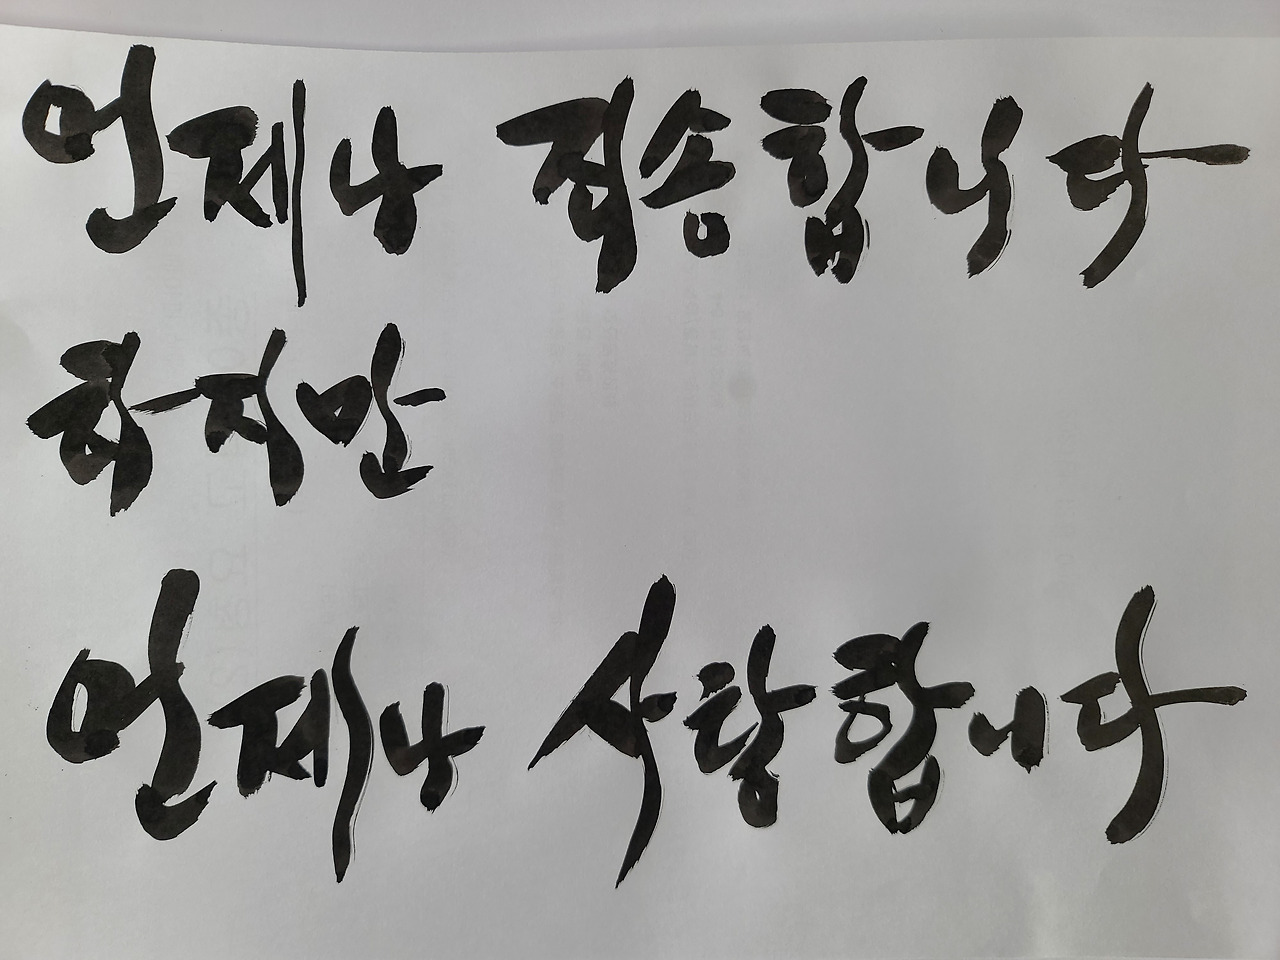 언제나 죄송합니다
하지만
언제나 사랑합니다